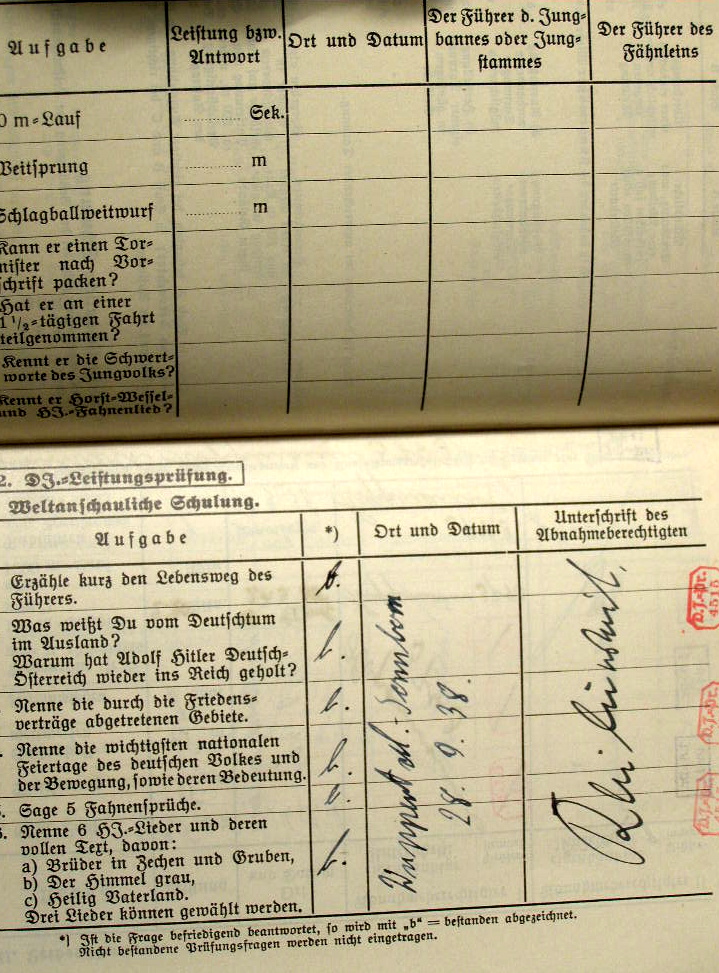 Aufgabe
Leistung bzw.
Antwort
Ort und Datum
Der Führer d. Jung-
bannes oder Jung-
stammes
Der Führer des
Fähnleins
0 m-Lauf
Sek.
Weitsprung
m
Schlagballweitwurf
m
Kann er einen Tor-
nister nach Vor-
schrift packen?
Hat er an einer
1 1/2-tägigen Fahrt
teilgenommen?
Kennt er die Schwert-
worte des Jungvolks?
Kennt er Horst-Wessel-
und HJ.-Fahnenlied?
2. DJ.-Leistungsprüfung.
Weltanschauliche Schulung.
Aufgabe
*)
Ort und Datum
Unterschrift des
Abnahmeberechtigten
Erzähle kurz den Lebensweg des
Führers.
b.
Was weißt Du vom Deutschtum
im Ausland?
Warum hat Adolf Hitler Deutsch-
Österreich wieder ins Reich geholt?
b.
Nenne die durch die Friedens-
verträge abgetretenen Gebiete.
b.
Nenne die wichtigsten nationalen
Feiertage des deutschen Volkes und
der Bewegung, sowie deren Bedeutung.
b.
Sage 5 Fahnensprüche.
b.
Nenne 6 HJ.-Lieder und deren
vollen Text, davon:
a) Brüder in Zechen und Gruben,
b) Der Himmel grau,
c) Heilig Vaterland.
Drei Lieder können gewählt werden.
b.
28. 9. 38.
D.J.-Pr.
4515
D.J.-Pr.
*) Ist die Frage befriedigend beantwortet, so wird mit „b“ = bestanden abgezeichnet.
Nicht bestandene Prüfungsfragen werden nicht eingetragen.